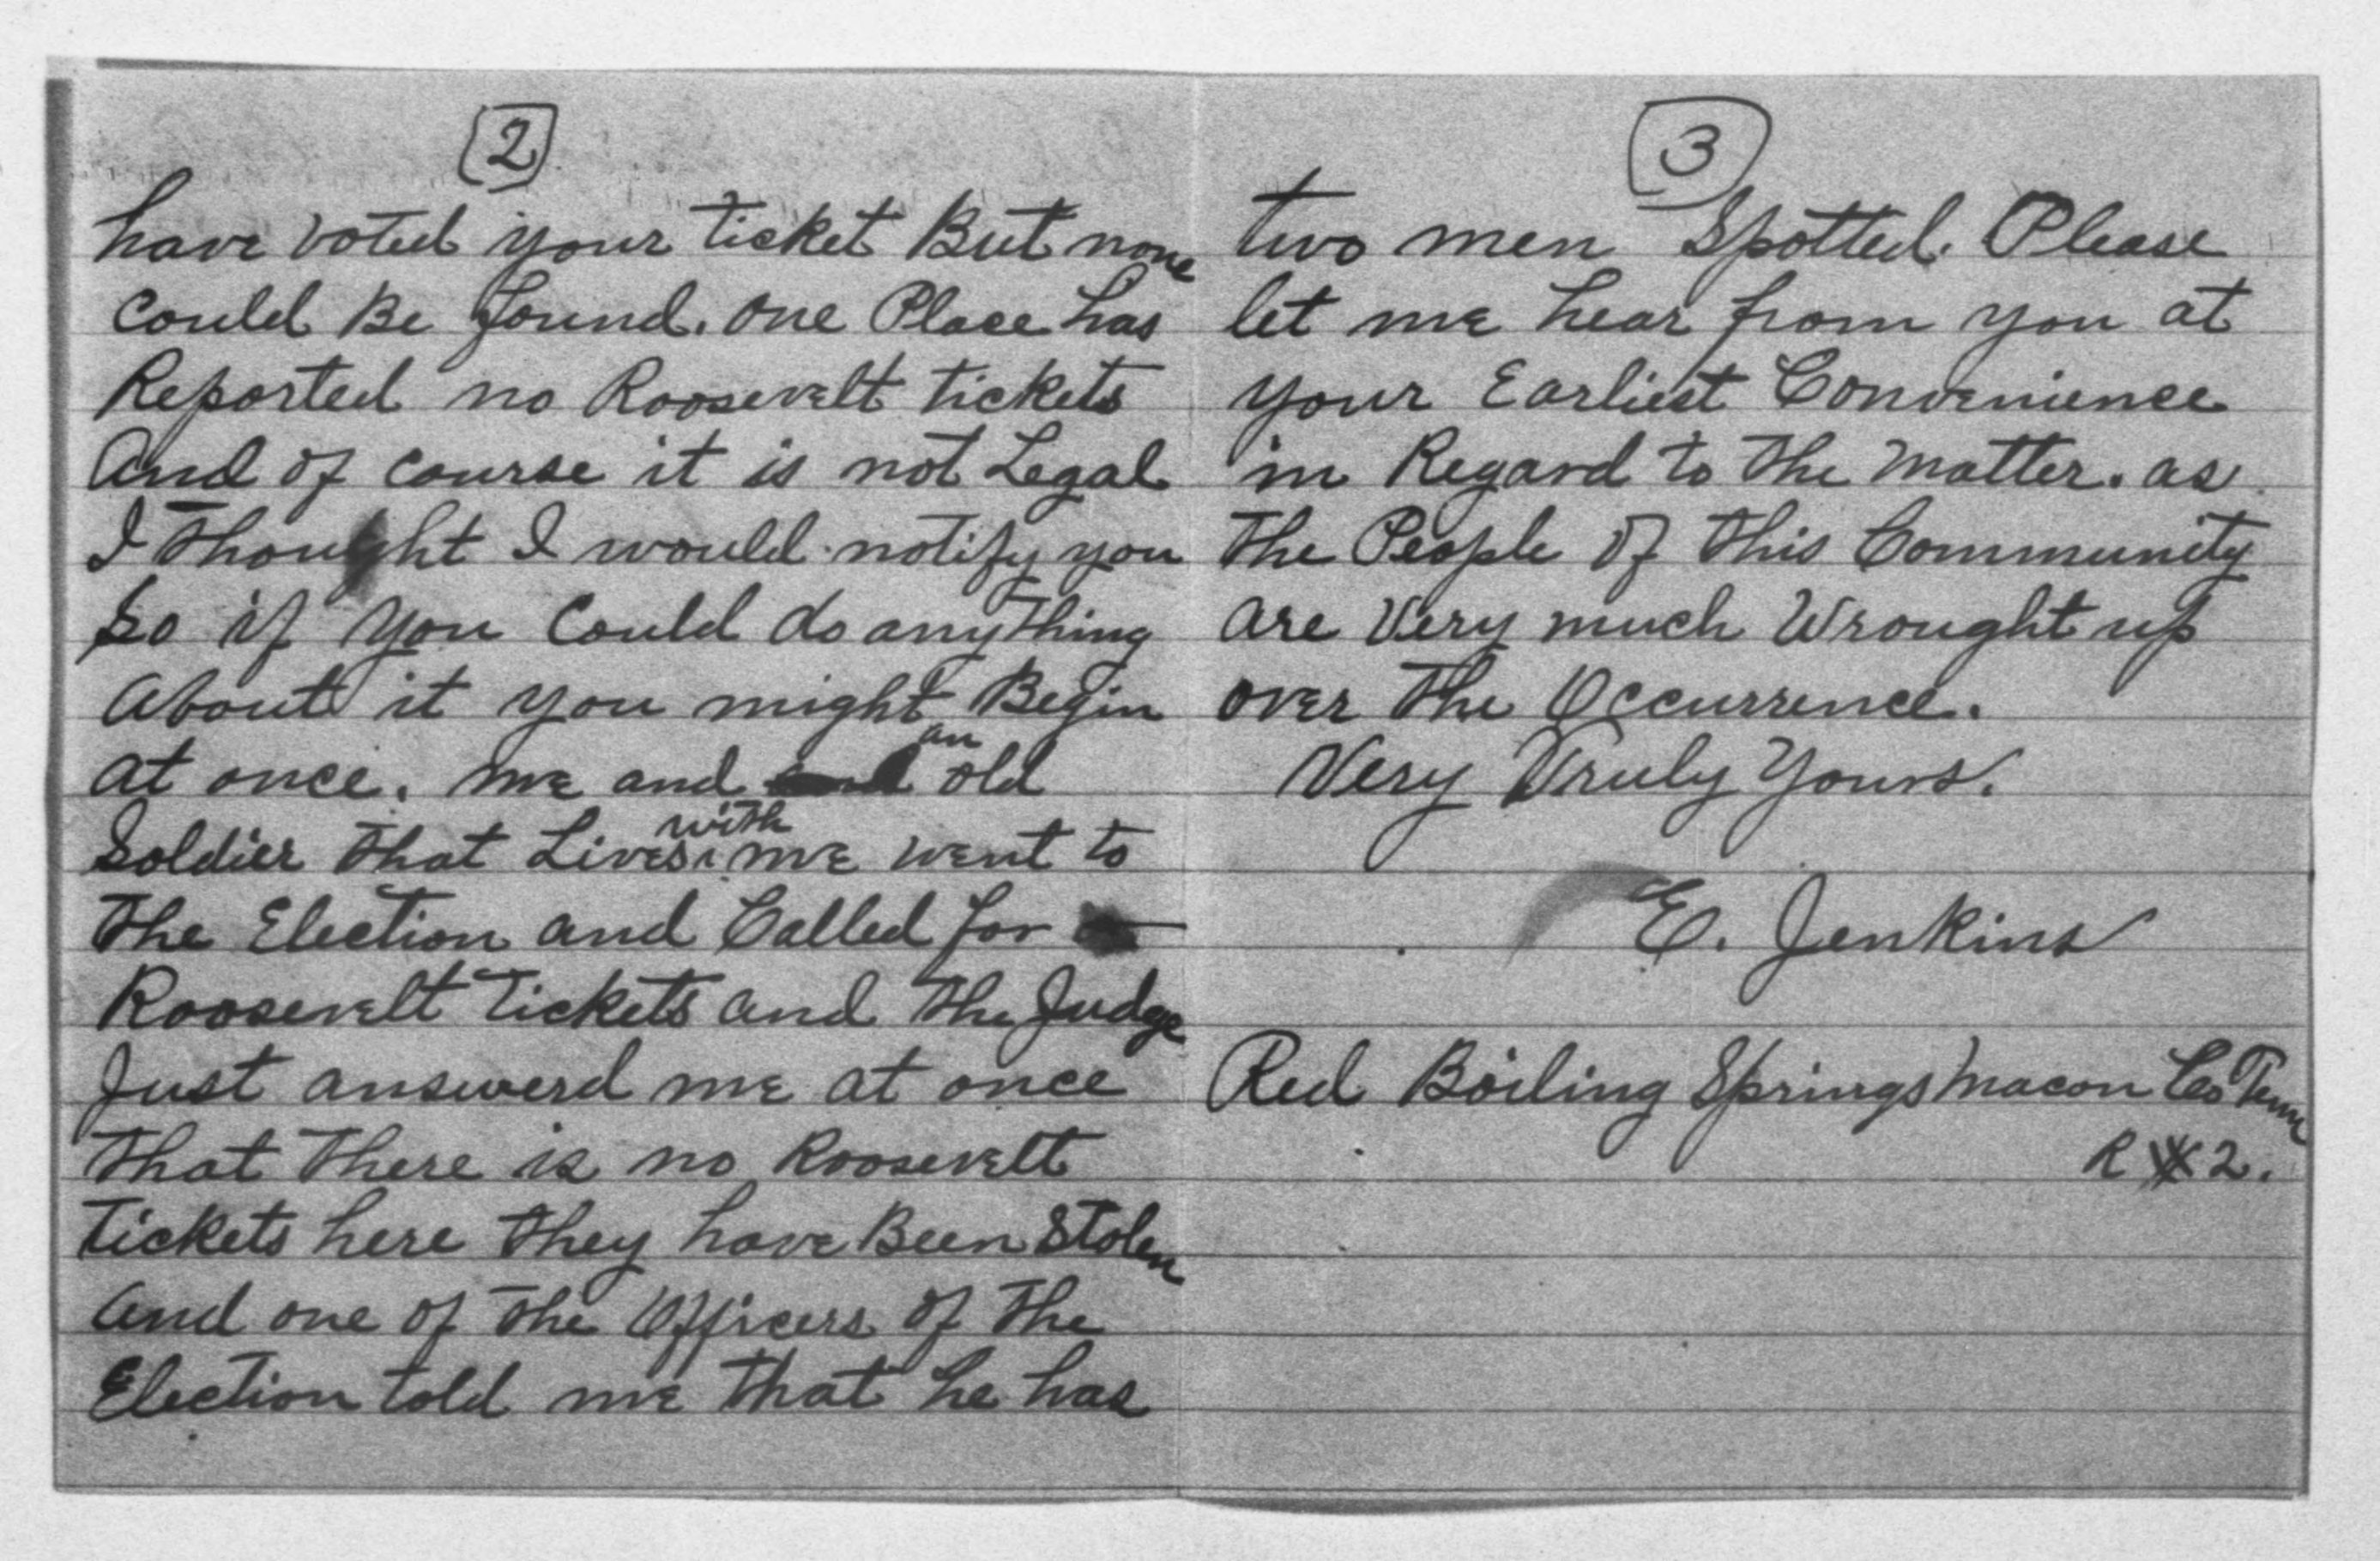 2
have voted your ticket But none
could Be found. one Place has
Reported no Roosevelt tickets
And of course it is not Legal
I thought I would notify you
So if you Could do anything
About it you might Begin
at once. me and an old
Soldier that Lives with me went to
the Election and Called for
Roosevelt Tickets and the Judge
Just answerd me at once
that there is no Roosevelt
Tickets here they have Been Stolen
And one of the Officers of the
Election told me that he has
3
two men Spotted. Please
let me hear from you at
your Earliest Convenience
in Regard to the matter. as
the People of this Community
are Very much Wrought up
over the Occurrence.
Very Truly Yours.
E. Jenkins
Red Boiling Springs Macon Co Tenn
R # 2.